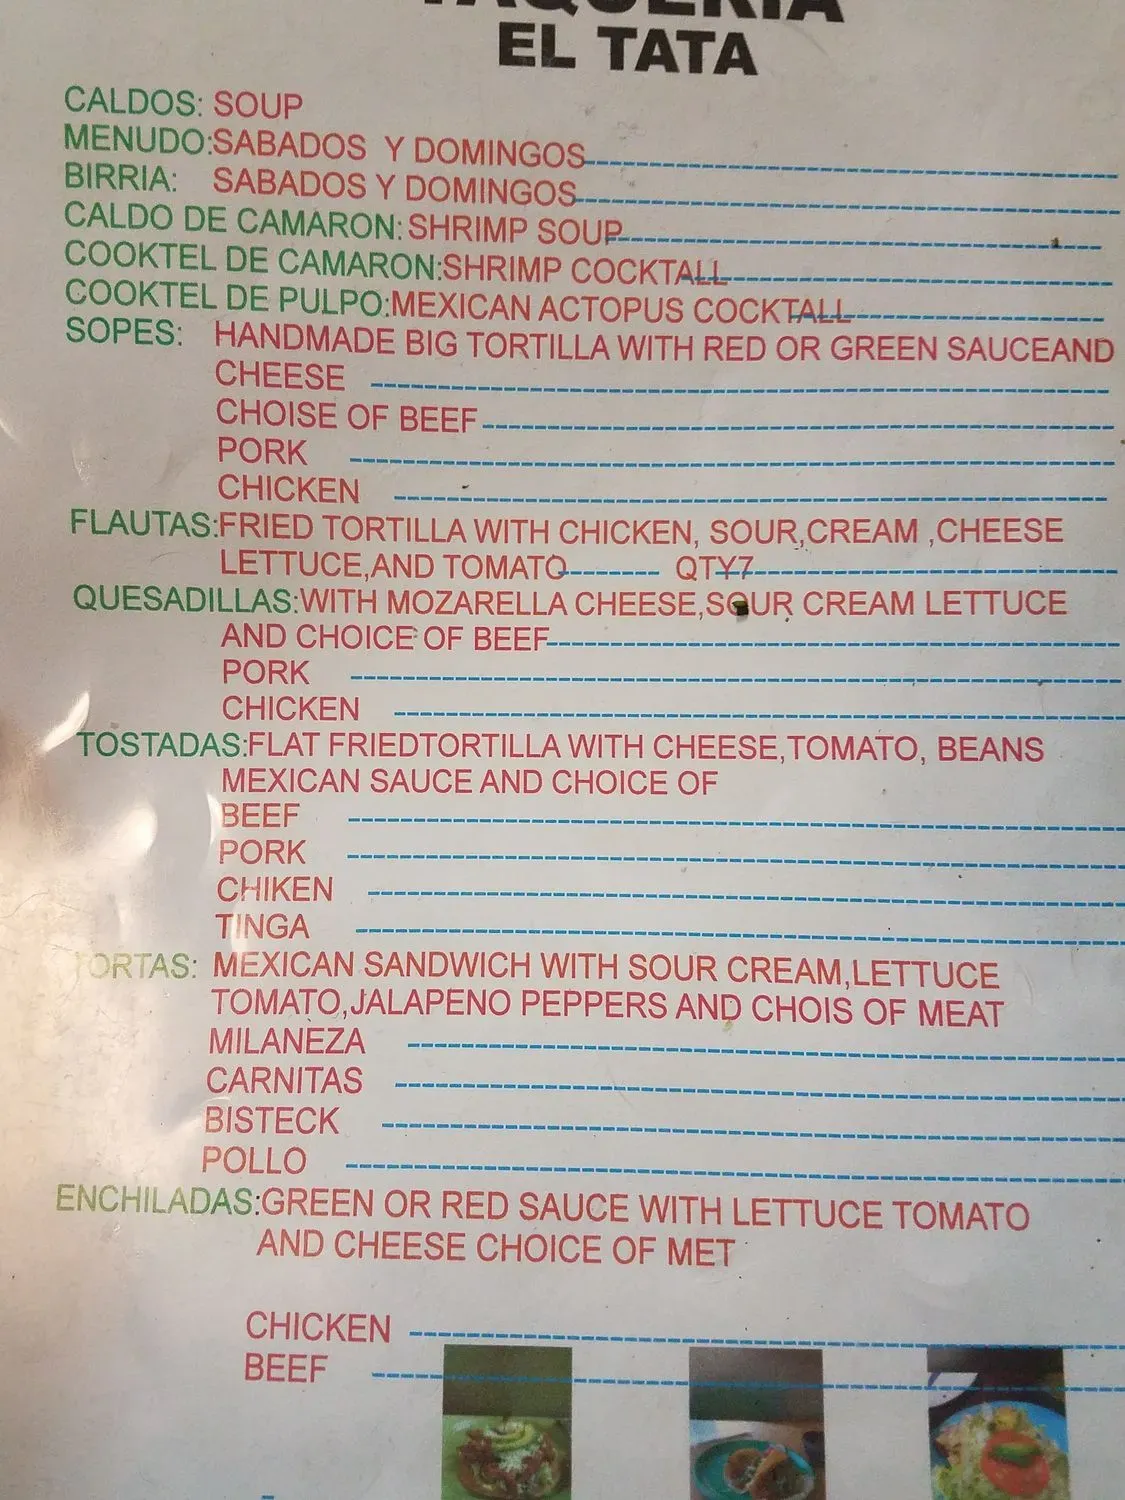 TAQUERIA
EL TATA
CALDOS: SOUP
MENUDO:SABADOS Y DOMINGOS
BIRRIA: SABADOS Y DOMINGOS
CALDO DE CAMARON: SHRIMP SOUP
COOKTEL DE CAMARON:SHRIMP COCKTALL
COOKTEL DE PULPO:MEXICAN ACTOPUS COCKTALL
SOPES: HANDMADE BIG TORTILLA WITH RED OR GREEN SAUCEAND
CHEESE
CHOISE OF BEEF
PORK
CHICKEN
FLAUTAS:FRIED TORTILLA WITH CHICKEN, SOUR,CREAM ,CHEESE
LETTUCE,AND TOMATO QTY7
QUESADILLAS:WITH MOZARELLA CHEESE,SOUR CREAM LETTUCE
AND CHOICE OF BEEF
PORK
CHICKEN
TOSTADAS:FLAT FRIEDTORTILLA WITH CHEESE,TOMATO, BEANS
MEXICAN SAUCE AND CHOICE OF
BEEF
PORK
CHIKEN
TINGA
TORTAS: MEXICAN SANDWICH WITH SOUR CREAM,LETTUCE
TOMATO,JALAPENO PEPPERS AND CHOIS OF MEAT
MILANEZA
CARNITAS
BISTECK
POLLO
ENCHILADAS:GREEN OR RED SAUCE WITH LETTUCE TOMATO
AND CHEESE CHOICE OF MET
CHICKEN
BEEF